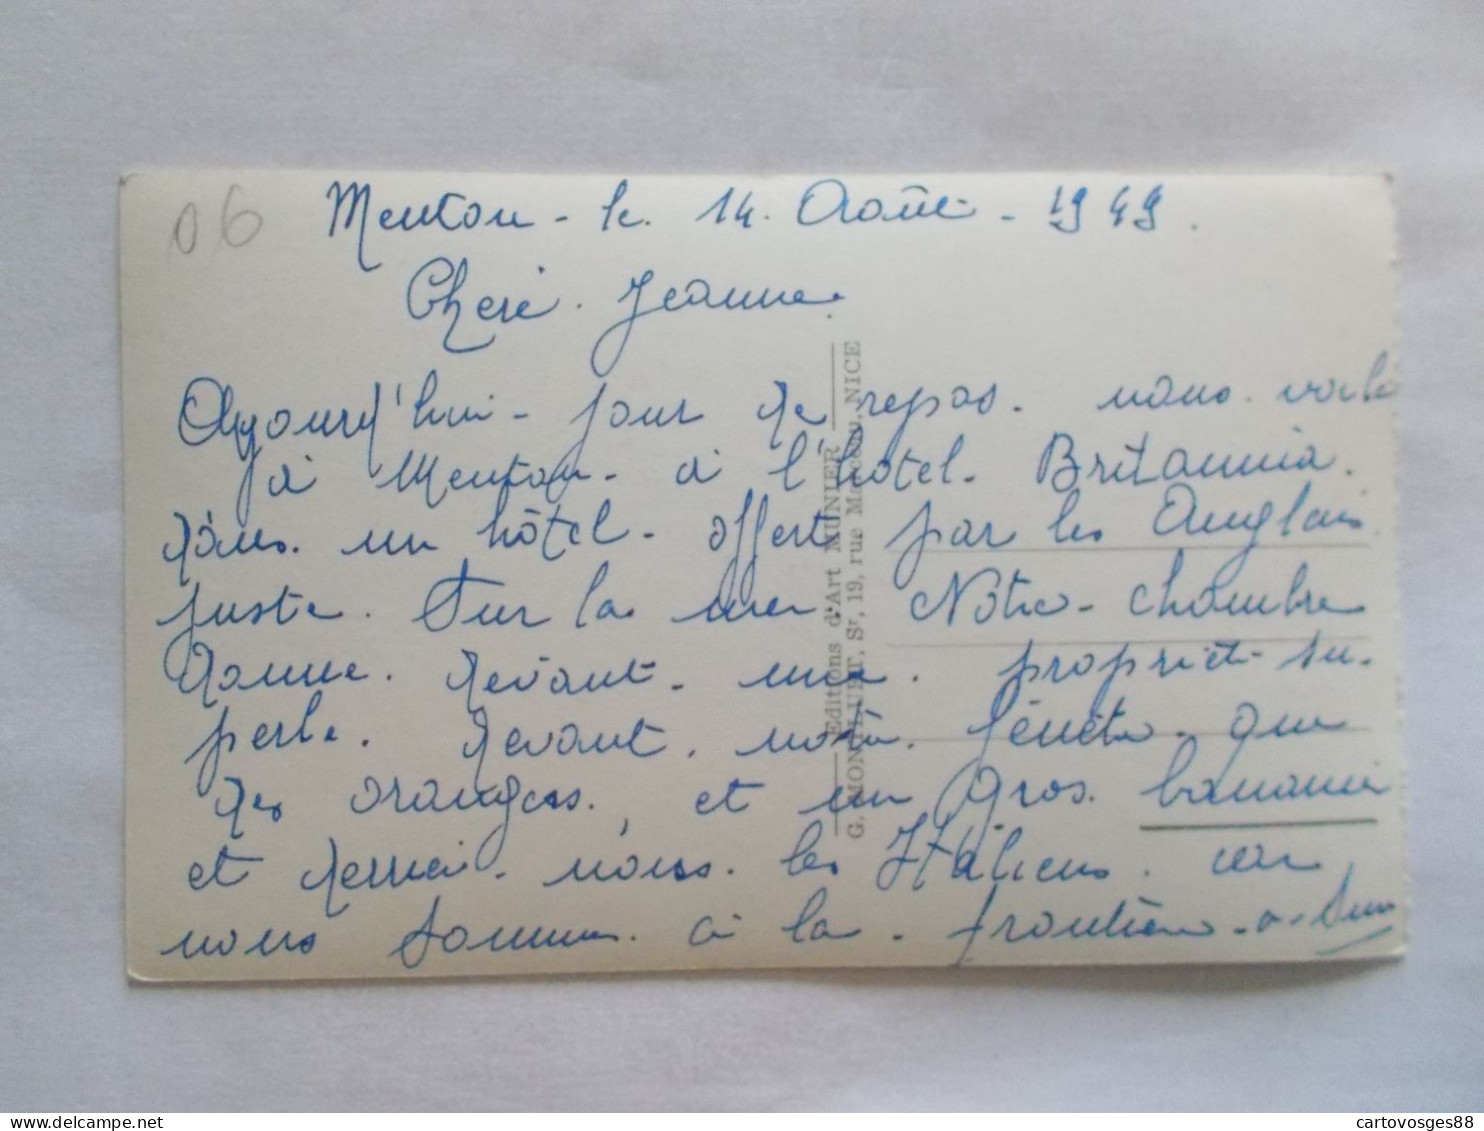 06
Menton - le. 14. Août - 1949.
Cheré. Jeanne.
Aujourd'hui - jour de repos. nous. voilà
à Menton - à l'hôtel - Britannia.
dans. un hôtel - offert par les Anglais
juste. Sur la mer Notre - chambre
donne. devant. une. propriété su-
perbe. devant. notre. fenêtre. que
des oranges, et un gros. bananier
et derrière. nous. les Italiens. car
nous sommes. à la - frontière -
Editions d'Art MUNIER
G. MONTLUET, Sr, 19, rue Marceau, NICE
cartovosges88